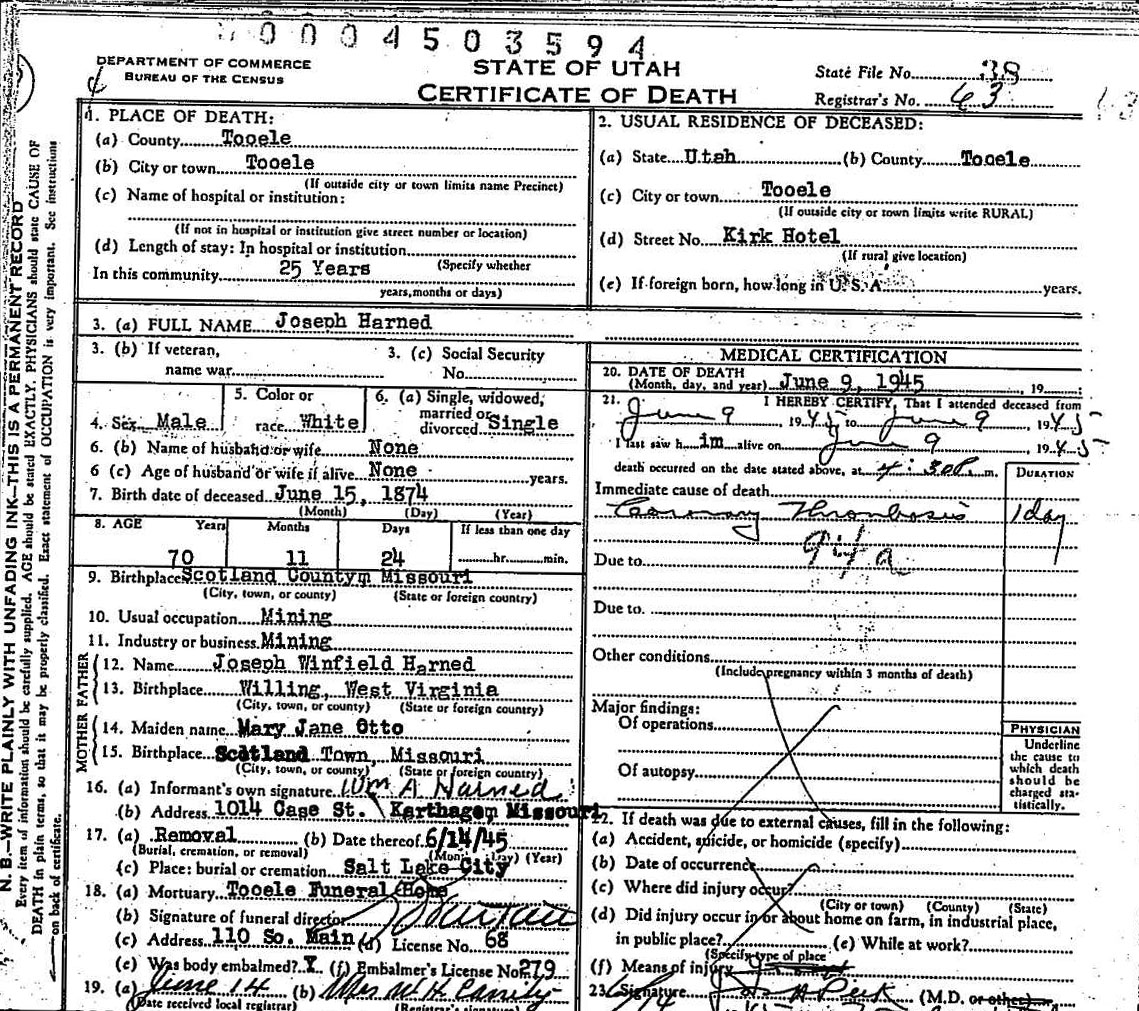 0004503594
DEPARTMENT OF COMMERCE
BUREAU OF THE CENSUS
STATE OF UTAH
CERTIFICATE OF DEATH
State File No. 38
Registrar's No. 63
N. B.—WRITE PLAINLY WITH UNFADING INK—THIS IS A PERMANENT RECORD
Every item of information should be carefully supplied. AGE should be stated EXACTLY. PHYSICIANS should state CAUSE OF
DEATH in plain terms, so that it may be properly classified. Exact statement of OCCUPATION is very important. See instructions
on back of certificate.
1. PLACE OF DEATH:
(a) County Tooele
(b) City or town Tooele
(If outside city or town limits name Precinct)
(c) Name of hospital or institution:
(If not in hospital or institution give street number or location)
(d) Length of stay: In hospital or institution
(Specify whether
In this community 25 Years
years, months or days)
2. USUAL RESIDENCE OF DECEASED:
(a) State Utah (b) County Tooele
(c) City or town Tooele
(If outside city or town limits write RURAL)
(d) Street No. Kirk Hotel
(If rural give location)
(e) If foreign born, how long in U. S. A. years.
3. (a) FULL NAME Joseph Harned
3. (b) If veteran,
name war
3. (c) Social Security
No.
4. Sex Male
5. Color or
race White
6. (a) Single, widowed,
married or
divorced Single
6. (b) Name of husband or wife None
6 (c) Age of husband or wife if alive None years.
7. Birth date of deceased June 15, 1874
(Month) (Day) (Year)
8. AGE Years Months Days If less than one day
70 11 24 hr. min.
9. Birthplace Scotland Countym Missouri
(City, town, or county) (State or foreign country)
10. Usual occupation Mining
11. Industry or business Mining
FATHER
12. Name Joseph Winfield Harned
13. Birthplace Willing, West Virginia
(City, town, or county) (State or foreign country)
MOTHER
14. Maiden name Mary Jane Otto
15. Birthplace Scotland Town, Missouri
(City, town, or county) (State or foreign country)
16. (a) Informant's own signature Wm A Harned
(b) Address 1014 Case St. Karthagem Missouri
17. (a) Removal (b) Date thereof 6/14/45
(Burial, cremation, or removal) (Month) (Day) (Year)
(c) Place: burial or cremation Salt Lake City
18. (a) Mortuary Tooele Funeral Home
(b) Signature of funeral director
(c) Address 110 So. Main (d) License No. 68
(e) Was body embalmed? Y (f) Embalmer's License No. 279
19. (a) June 14 (b) Mrs W H
(Date received local registrar) (Registrar's signature)
MEDICAL CERTIFICATION
20. DATE OF DEATH
(Month, day, and year) June 9, 1945, 19
21. I HEREBY CERTIFY, That I attended deceased from
June 9, 1945 to June 9, 1945
I last saw him alive on June 9, 1945
death occurred on the date stated above, at 4:30 P. m.
DURATION
Immediate cause of death
Coronary Thrombosis 1 day
94a
Due to
Due to.
Other conditions
(Include pregnancy within 3 months of death)
Major findings:
Of operations
Of autopsy
PHYSICIAN
Underline
the cause to
which death
should be
charged sta-
tistically.
22. If death was due to external causes, fill in the following:
(a) Accident, suicide, or homicide (specify)
(b) Date of occurrence
(c) Where did injury occur?
(City or town) (County) (State)
(d) Did injury occur in or about home on farm, in industrial place,
in public place? (e) While at work?
(Specify type of place
(f) Means of injury
23. Signature Peck (M.D. or other)